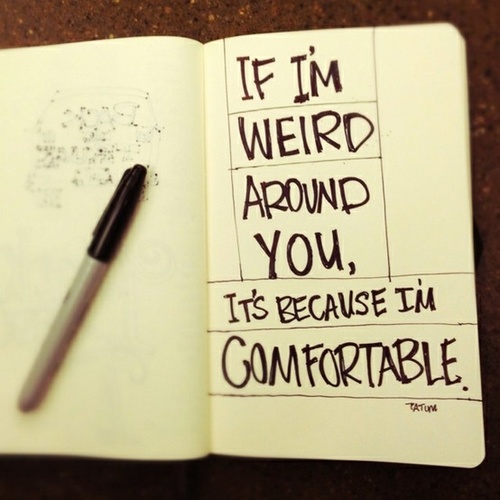 IF I'M
WEIRD
AROUND
YOU,
IT'S BECAUSE I'M
COMFORTABLE.
TATUM